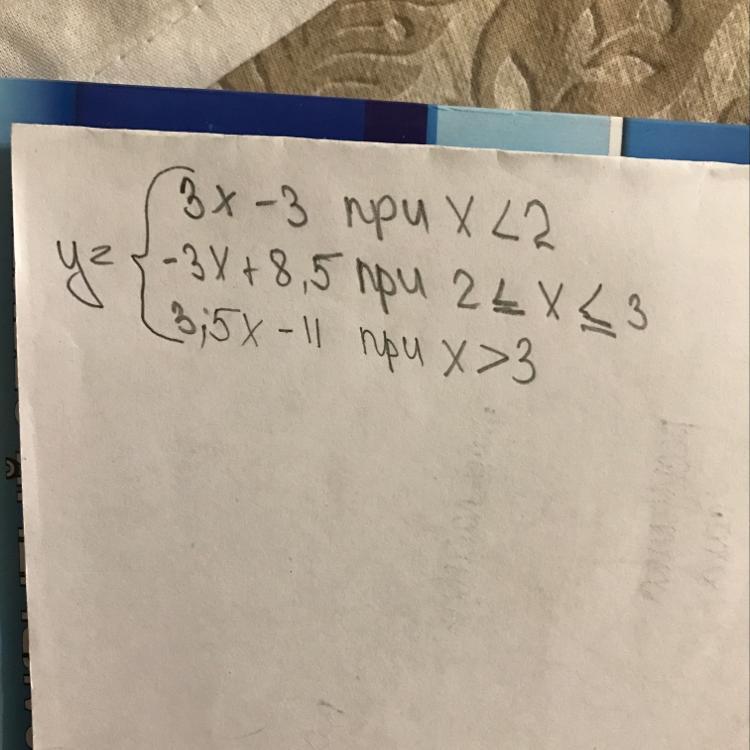 y= { 3x - 3 при x < 2
-3x + 8,5 при 2 ≤ x ≤ 3
3,5x - 11 при x > 3